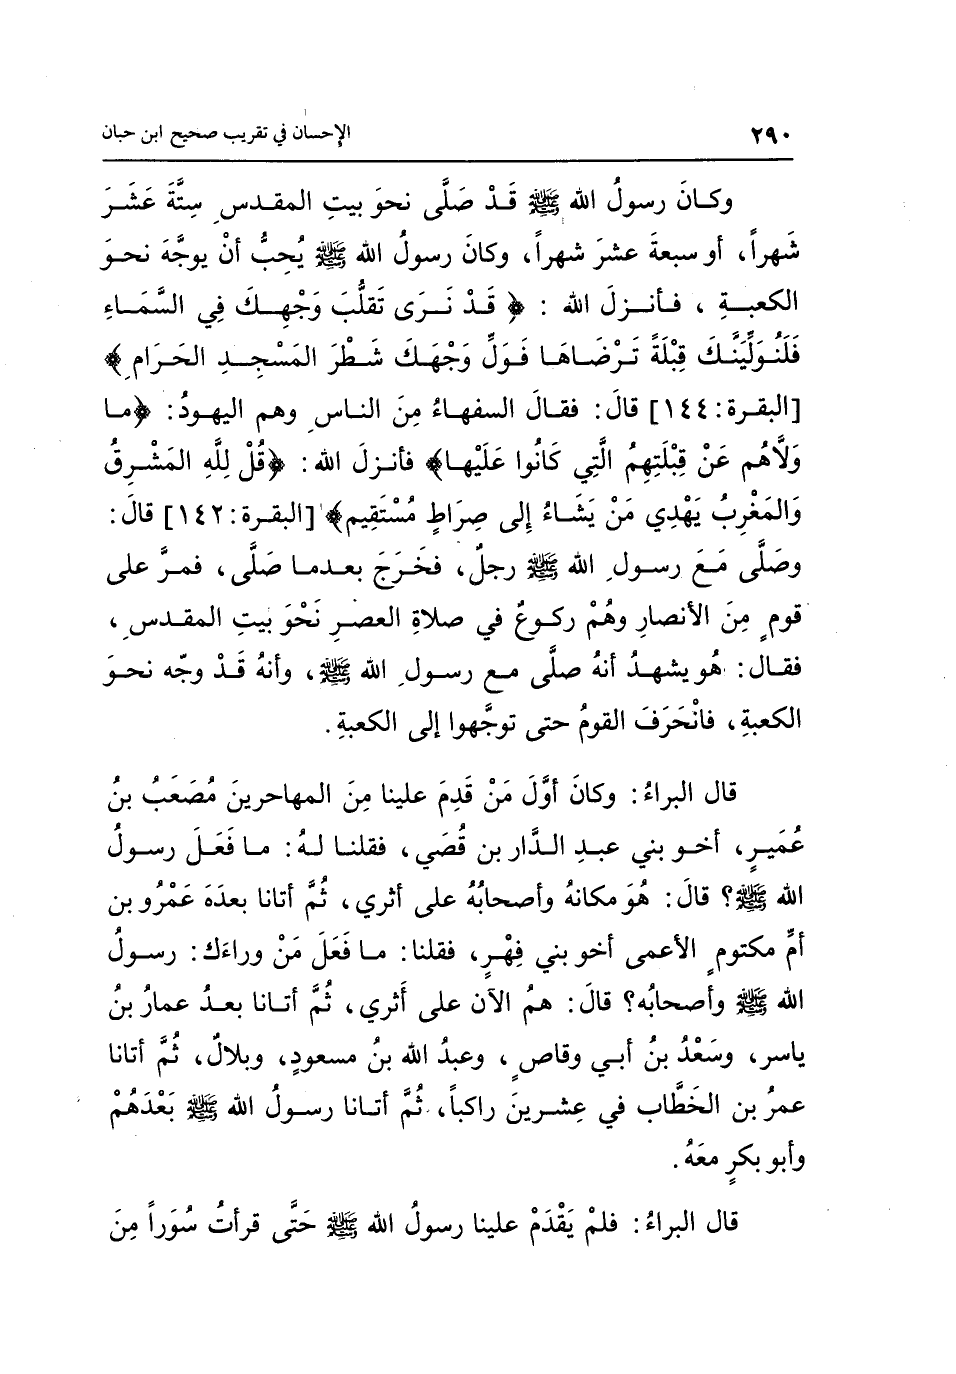 ٢٩٠ الإحسان في تقريب صحيح ابن حبان
وكانَ رسولُ الله ﷺ قَدْ صَلَّى نحوَ بيتِ المقدسِ سِتَّةَ عَشَرَ
شَهراً، أو سبعةَ عشرَ شهراً، وكانَ رسولُ الله ﷺ يُحِبُّ أنْ يوجَّهَ نحوَ
الكعبةِ ، فأنزلَ الله : ﴿ قَدْ نَرَى تَقلُّبَ وَجْهِكَ فِي السَّمَاءِ
فَلَنُوَلِّيَنَّكَ قِبْلَةً تَرْضَاهَا فَوَلِّ وَجْهَكَ شَطْرَ المَسْجِدِ الحَرَامِ﴾
[البقرة: ١٤٤] قالَ: فقالَ السفهاءُ مِنَ الناسِ وهم اليهودُ: ﴿ما
وَلَّاهُم عَنْ قِبْلَتِهِمُ الَّتِي كَانُوا عَلَيْها﴾ فأنزلَ الله: ﴿قُلْ لِلَّهِ المَشْرِقُ
وَالمَغْرِبُ يَهْدِي مَنْ يَشَاءُ إلى صِرَاطٍ مُسْتَقِيم﴾ [البقرة: ١٤٢] قالَ:
وصَلَّى مَعَ رسولِ الله ﷺ رجلٌ، فخَرَجَ بعدما صَلَّى، فمرَّ على
قومٍ مِنَ الأنصارِ وهُمْ ركوعٌ في صلاةِ العصرِ نَحْوَ بيتِ المقدسِ ،
فقال: هُو يشهدُ أنهُ صلَّى مع رسولِ الله ﷺ، وأنهُ قَدْ وجّه نحوَ
الكعبةِ، فانْحَرَفَ القومُ حتى توجَّهوا إلى الكعبةِ.
قال البراءُ: وكانَ أوَّلَ مَنْ قَدِمَ علينا مِنَ المهاجرينَ مُصْعَبُ بنُ
عُمَيرٍ، أخو بني عبدِ الدَّار بن قُصَي، فقلنا لهُ: ما فَعَلَ رسولُ
الله ﷺ؟ قالَ: هُوَ مكانهُ وأصحابُهُ على أثري، ثُمَّ أتانا بعدَهَ عَمْرُو بن
أمِّ مكتومٍ الأعمى أخو بني فِهْرٍ، فقلنا: ما فَعَلَ مَنْ وراءَك: رسولُ
الله ﷺ وأصحابُه؟ قالَ: همُ الآن على أَثري، ثُمَّ أتانا بعدُ عمارُ بنُ
ياسر، وسَعْدُ بنُ أبي وقاصٍ ، وعبدُ الله بنُ مسعودٍ، وبلالٌ، ثُمَّ أتانا
عمرُ بن الخَطَّاب في عِشرينَ راكباً، ثُمَّ أتانا رسولُ الله ﷺ بَعْدَهُمْ
وأبو بكرٍ معَهُ.
قال البراءُ: فلمْ يَقْدَمْ علينا رسولُ الله ﷺ حَتَّى قرأتُ سُوَراً مِنَ